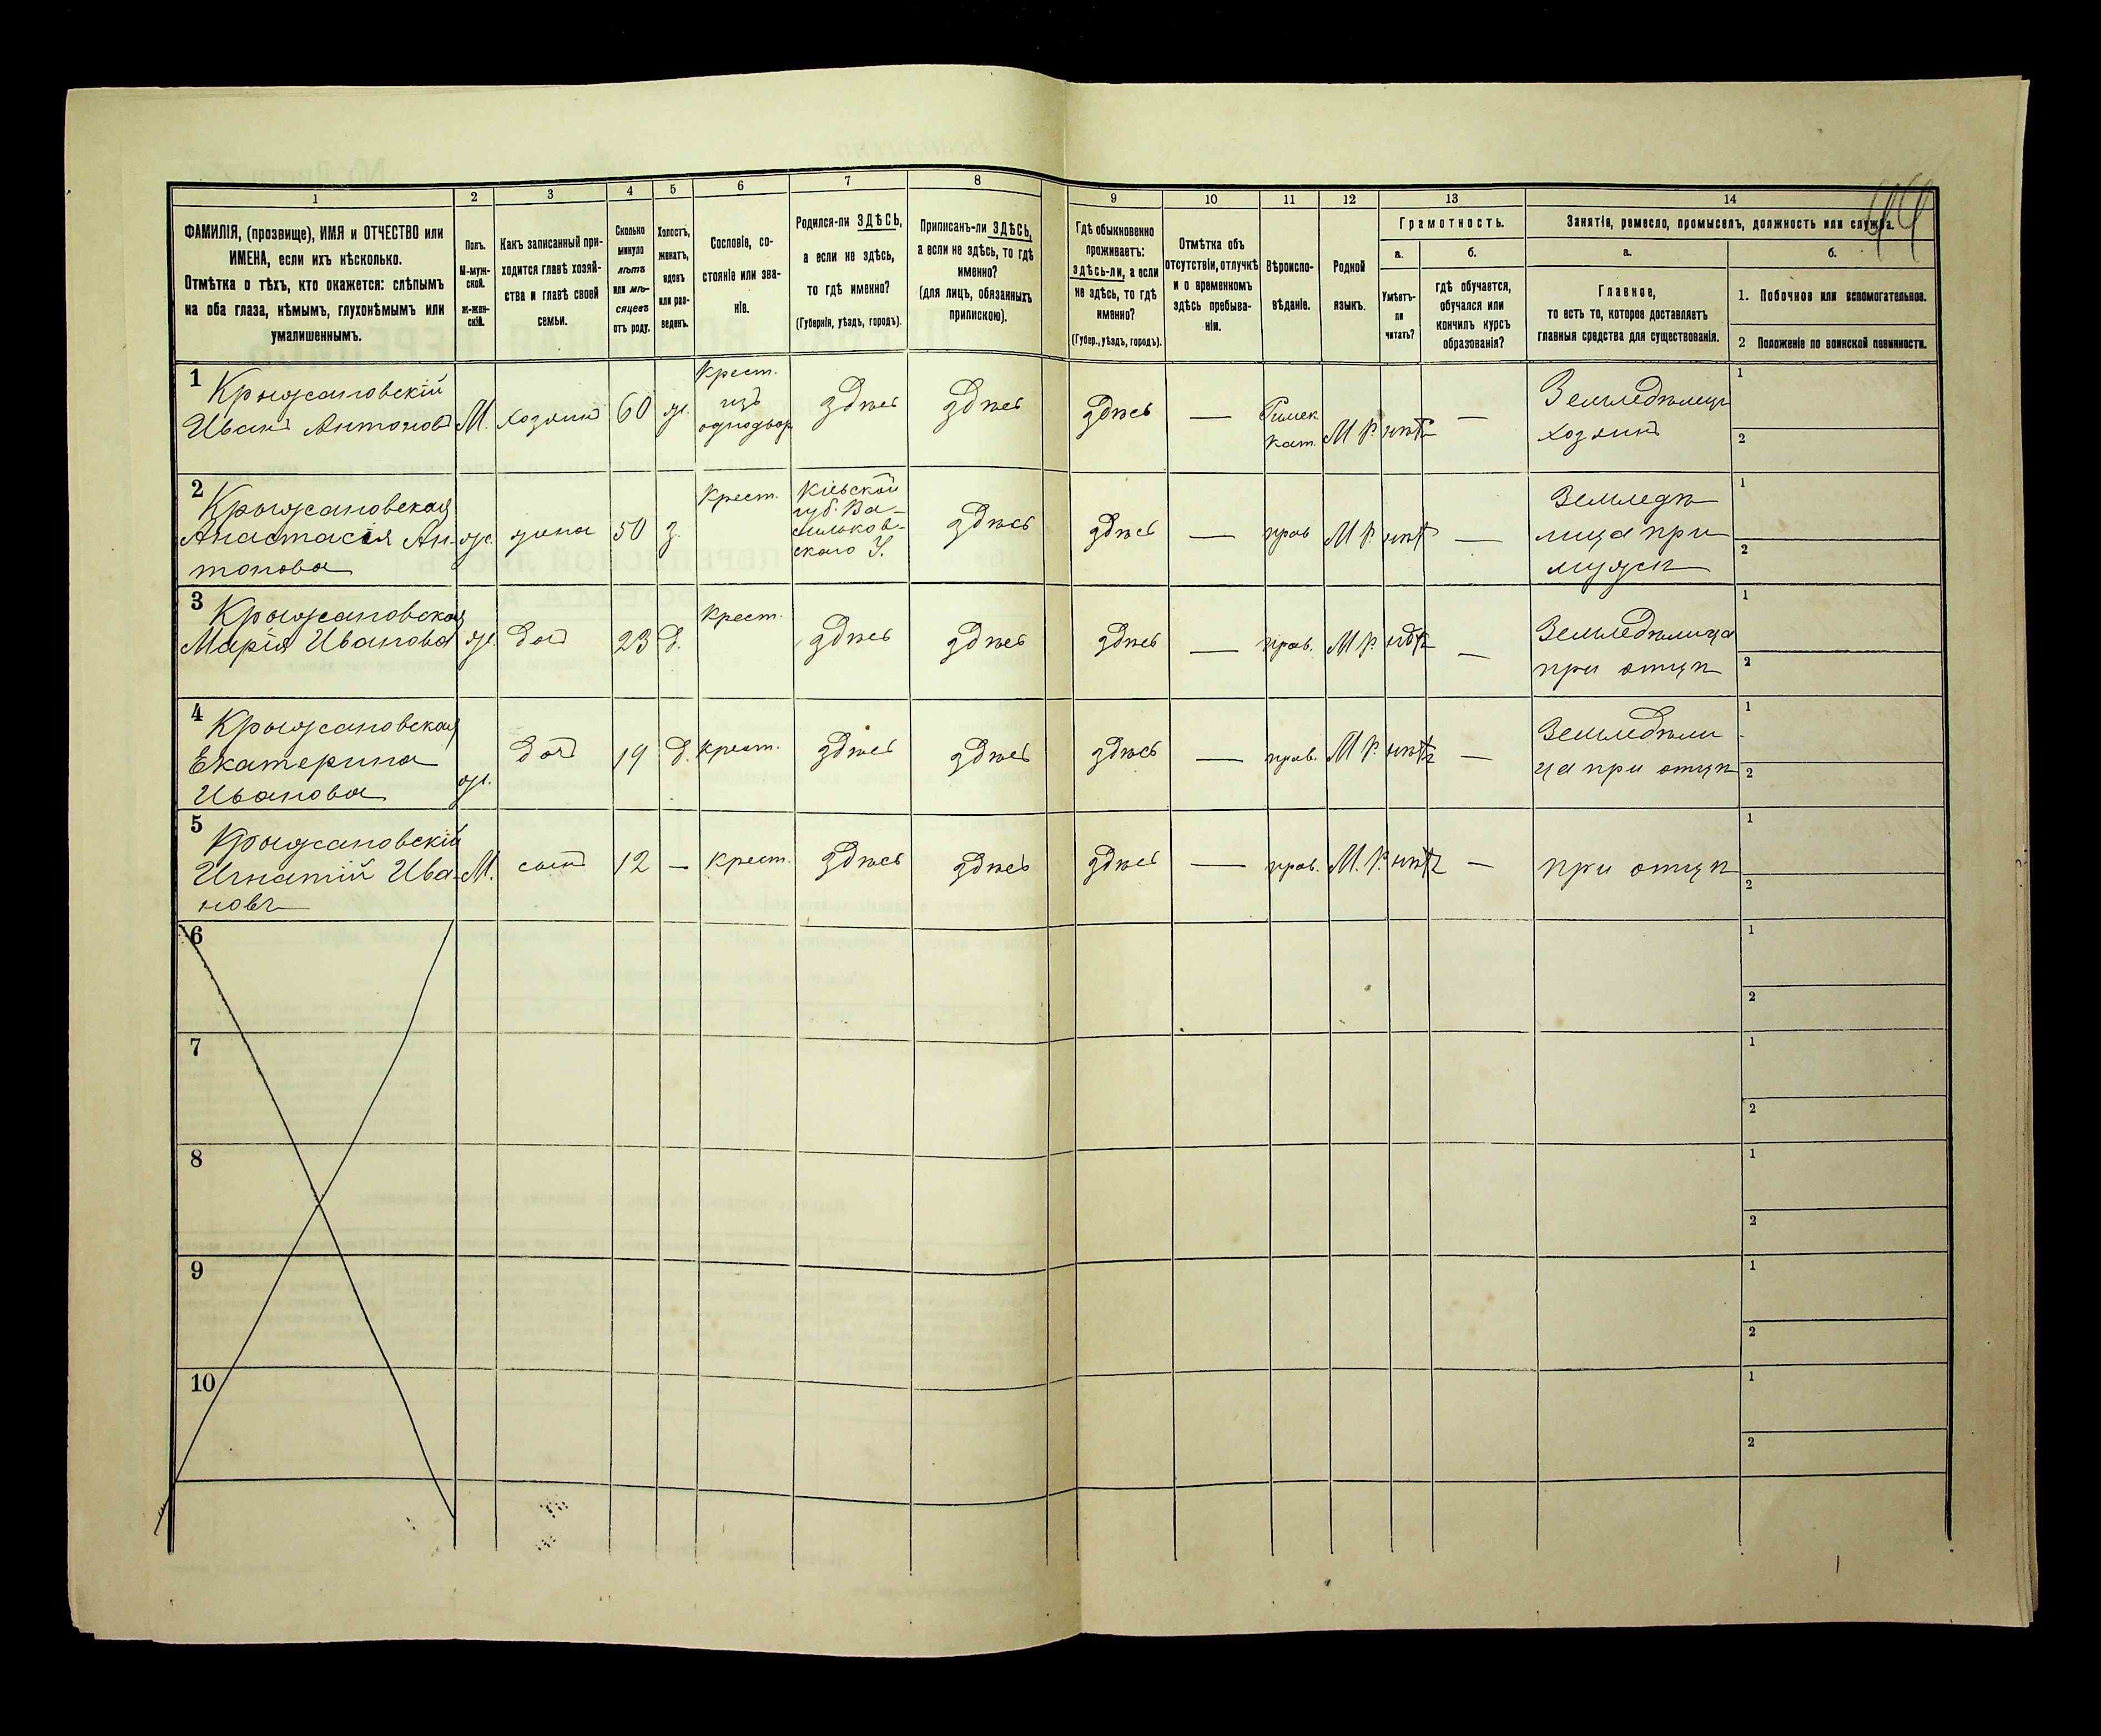 1
2
3
4
5
6
7
8
9
10
11
12
13
14
ФАМИЛІЯ, (прозвище), ИМЯ и ОТЧЕСТВО или
ИМЕНА, если ихъ нѣсколько.
Отмѣтка о тѣхъ, кто окажется: слѣпымъ
на оба глаза, нѣмымъ, глухонѣмымъ или
умалишеннымъ.
Полъ.
М-муж-
ской.
ж-жен-
скій.
Какъ записанный при-
ходится главѣ хозяй-
ства и главѣ своей
семьи.
Сколько
минуло
лѣтъ
или мѣ-
сяцевъ
отъ роду.
Холостъ,
женатъ,
вдовъ
или раз-
веденъ.
Сословіе, со-
стояніе или зва-
ніе.
Родился-ли ЗДѢСЬ,
а если не здѣсь,
то гдѣ именно?
(Губернія, уѣздъ, городъ).
Приписанъ-ли ЗДѢСЬ,
а если не здѣсь, то гдѣ
именно?
(для лицъ, обязанныхъ
припискою).
Гдѣ обыкновенно
проживаетъ:
здѣсь-ли, а если
не здѣсь, то гдѣ
именно?
(Губер., уѣздъ, городъ).
Отмѣтка объ
отсутствіи, отлучкѣ
и о временномъ
здѣсь пребыва-
ніи.
Вѣроиспо-
вѣданіе.
Родной
языкъ.
Грамотность.
а.
Умѣетъ-
ли
читать?
б.
гдѣ обучается,
обучался или
кончилъ курсъ
образованія?
Занятіе, ремесло, промыселъ, должность или служба.
а.
Главное,
то есть то, которое доставляетъ
главныя средства для существованія.
б.
1. Побочное или вспомогательное.
2 Положеніе по воинской повинности.
1
Крыжановскій
Иванъ Антоновъ
М.
хозяинъ
60
ж.
Крест.
изъ
однодвор
здѣсь
здѣсь
здѣсь
—
Римск
кат.
М. Р.
нѣтъ
—
Земледѣлецъ
хозяинъ
1
2
2
Крыжановская
Анастасія Ан-
тонова
ж.
жена
50
з.
Крест.
Кіевской
губ. Ва-
сильков-
скаго У.
здѣсь
здѣсь
—
прав
М. Р.
нѣтъ
—
Земледѣ
лица при
мужѣ
1
2
3
Крыжановская
Марія Иванова
ж.
доч
23
д.
Крест.
здѣсь
здѣсь
здѣсь
—
прав.
М. Р.
нѣтъ
—
Земледѣлица
при отцѣ
1
2
4
Крыжановская
Екатерина
Иванова
ж.
доч
19
д.
Крест.
здѣсь
здѣсь
здѣсь
—
прав.
М. Р.
нѣтъ
—
Земледѣли
ца при отцѣ
1
2
5
Крыжановскій
Игнатій Ива-
новъ
М.
сынъ
12
—
Крест.
здѣсь
здѣсь
здѣсь
—
прав.
М. Р.
нѣтъ
—
при отцѣ
1
2
6
1
2
7
1
2
8
1
2
9
1
2
10
1
2